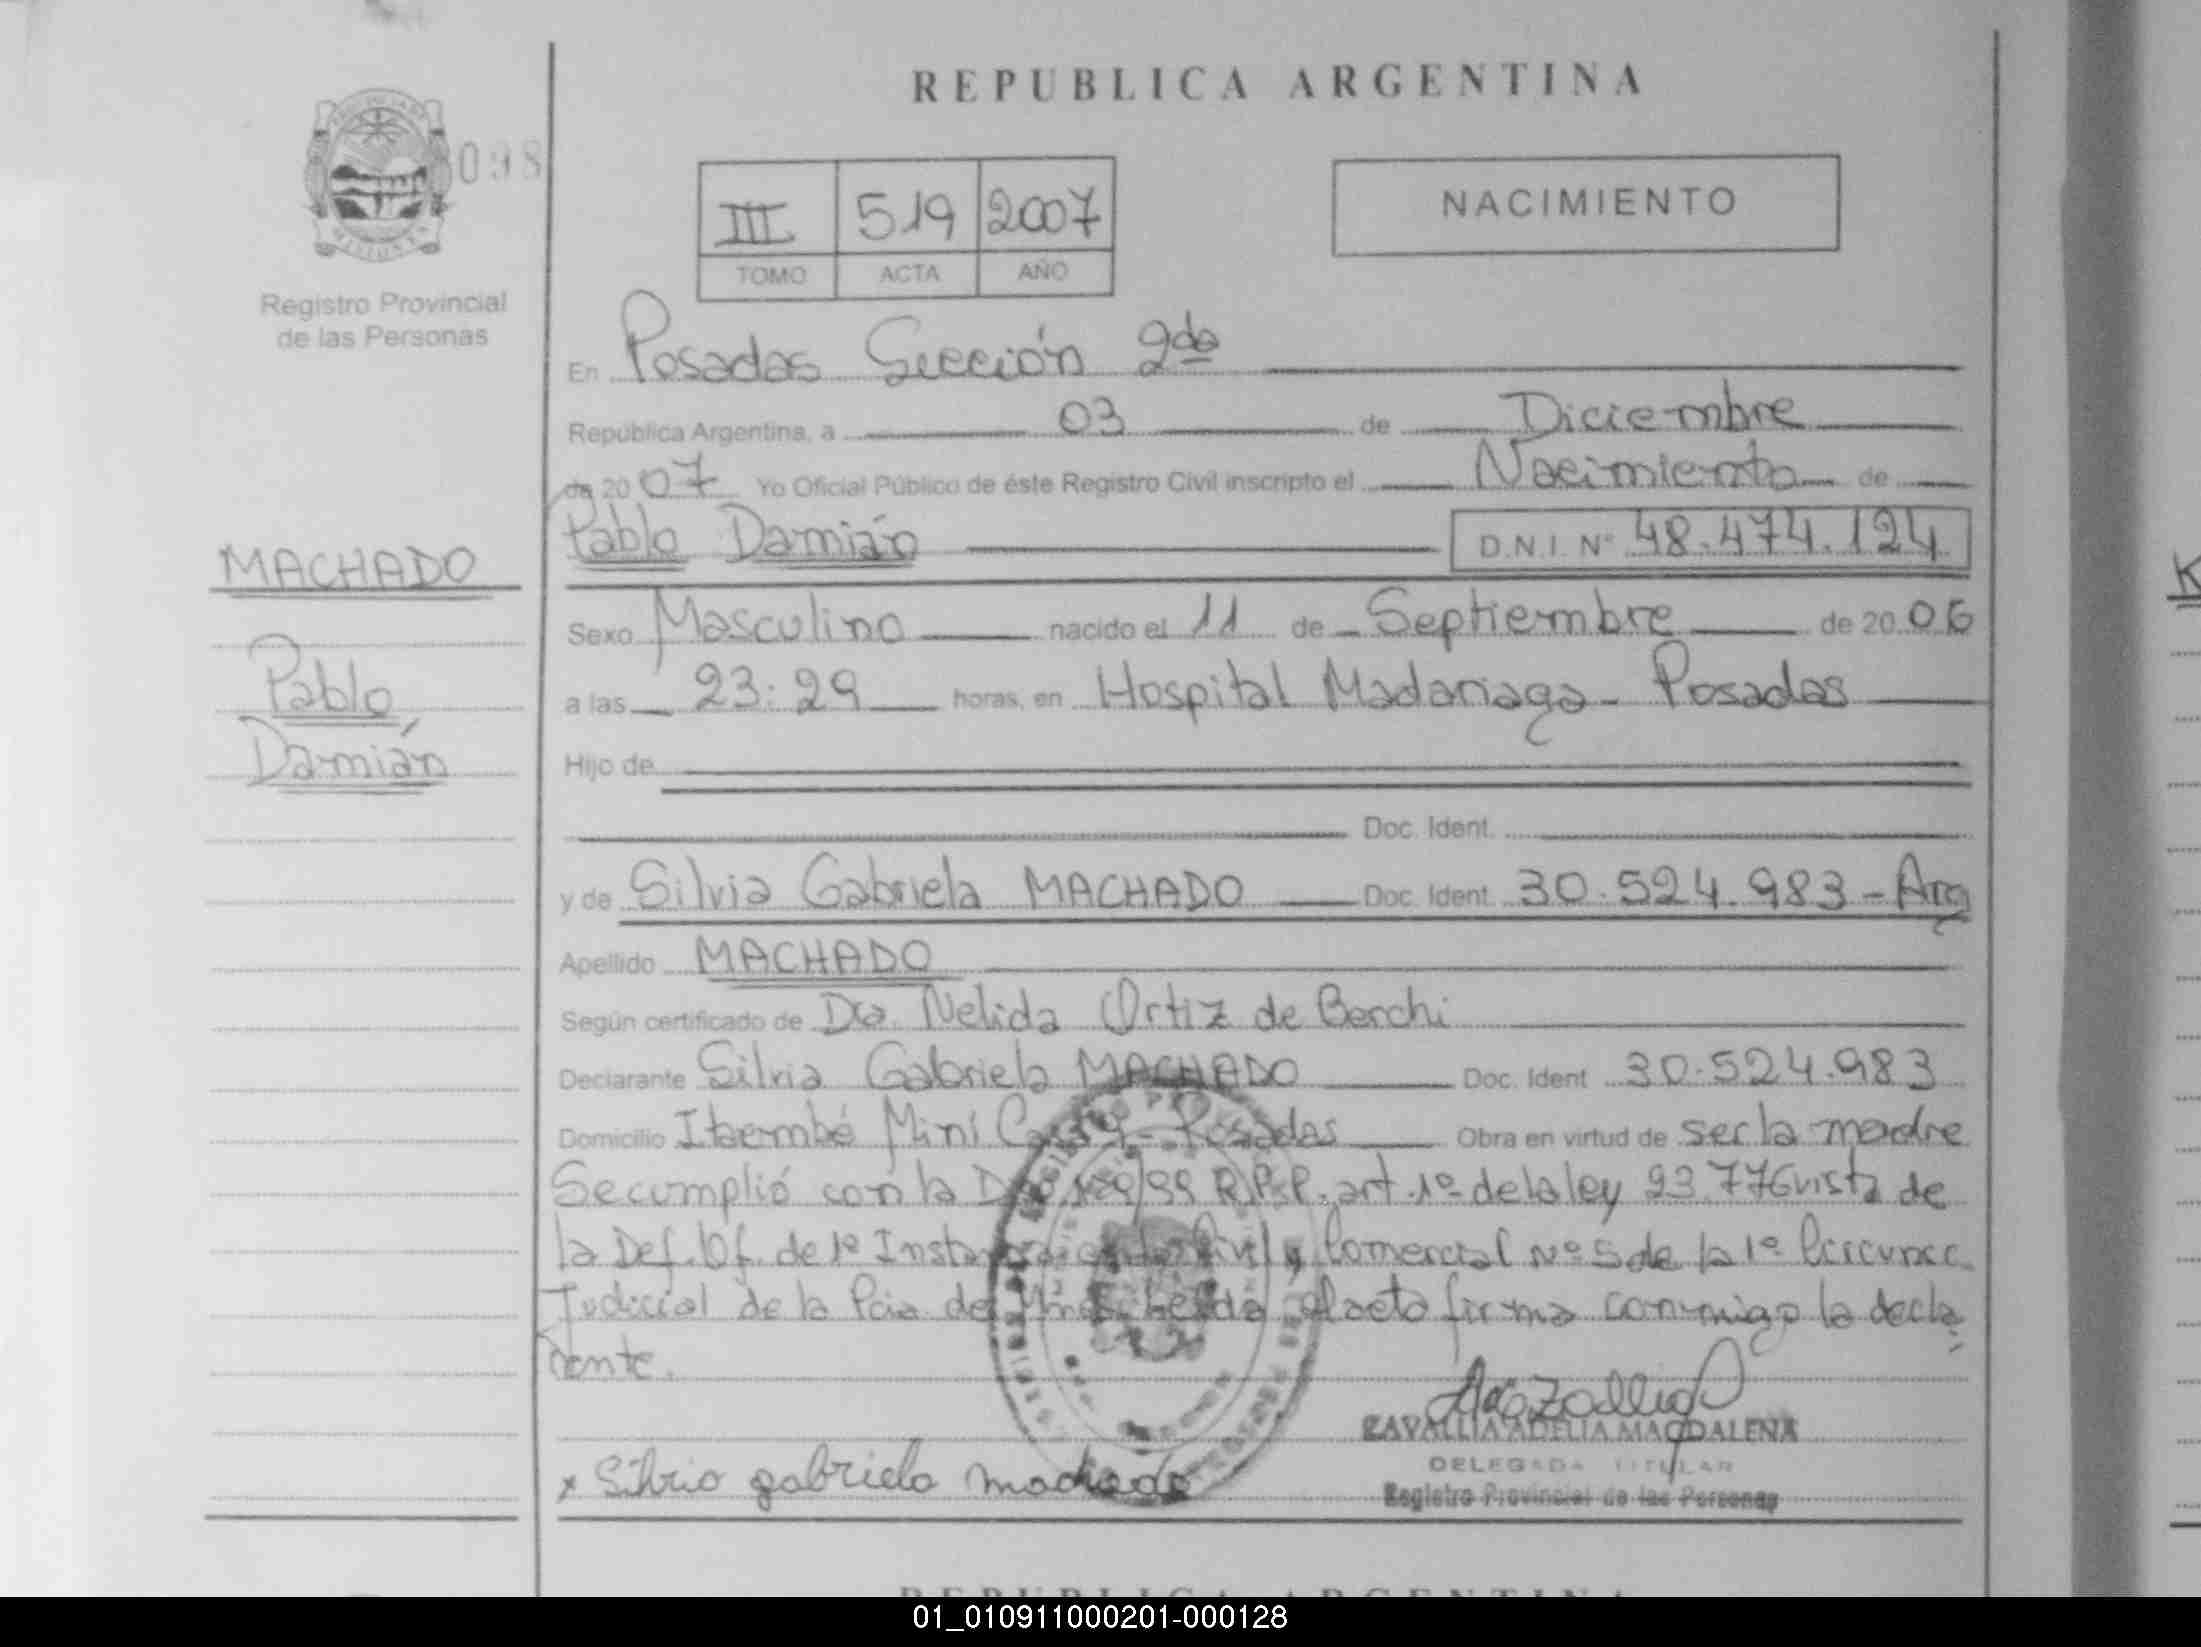 REPUBLICA ARGENTINA
098
III 519 2007
TOMO ACTA AÑO
NACIMIENTO
Registro Provincial
de las Personas
En Posadas Sección 2da
República Argentina, a 03 de Diciembre
de 2007 Yo Oficial Público de éste Registro Civil inscripto el Nacimiento de
Pablo Damián D.N.I. Nº 48.474.124
MACHADO
Pablo
Damián
Sexo Masculino nacido el 11 de Septiembre de 2006
a las 23:29 horas, en Hospital Madariaga - Posadas
Hijo de
Doc. Ident.
y de Silvia Gabriela MACHADO Doc. Ident. 30.524.983 - Arg
Apellido MACHADO
Según certificado de Dra. Nelida Ortiz de Berchi
Declarante Silvia Gabriela MACHADO Doc. Ident 30.524.983
Domicilio Itaembé Miní - Posadas Obra en virtud de ser la madre
Se cumplió con la R.P.P. art. 1º de la ley 23.776 vista de
la Def. Of. de 1º Civil y Comercial Nº 5 de la 1º Circunsc.
Judicial de la Pcia de el acto firma conmigo la decla
rante.
ZAVALLIA ADELIA MAGDALENA
DELEGADA TITULAR
Registro Provincial de las Personas
x Silvia gabriela machado
REPUBLICA ARGENTINA
01_010911000201-000128